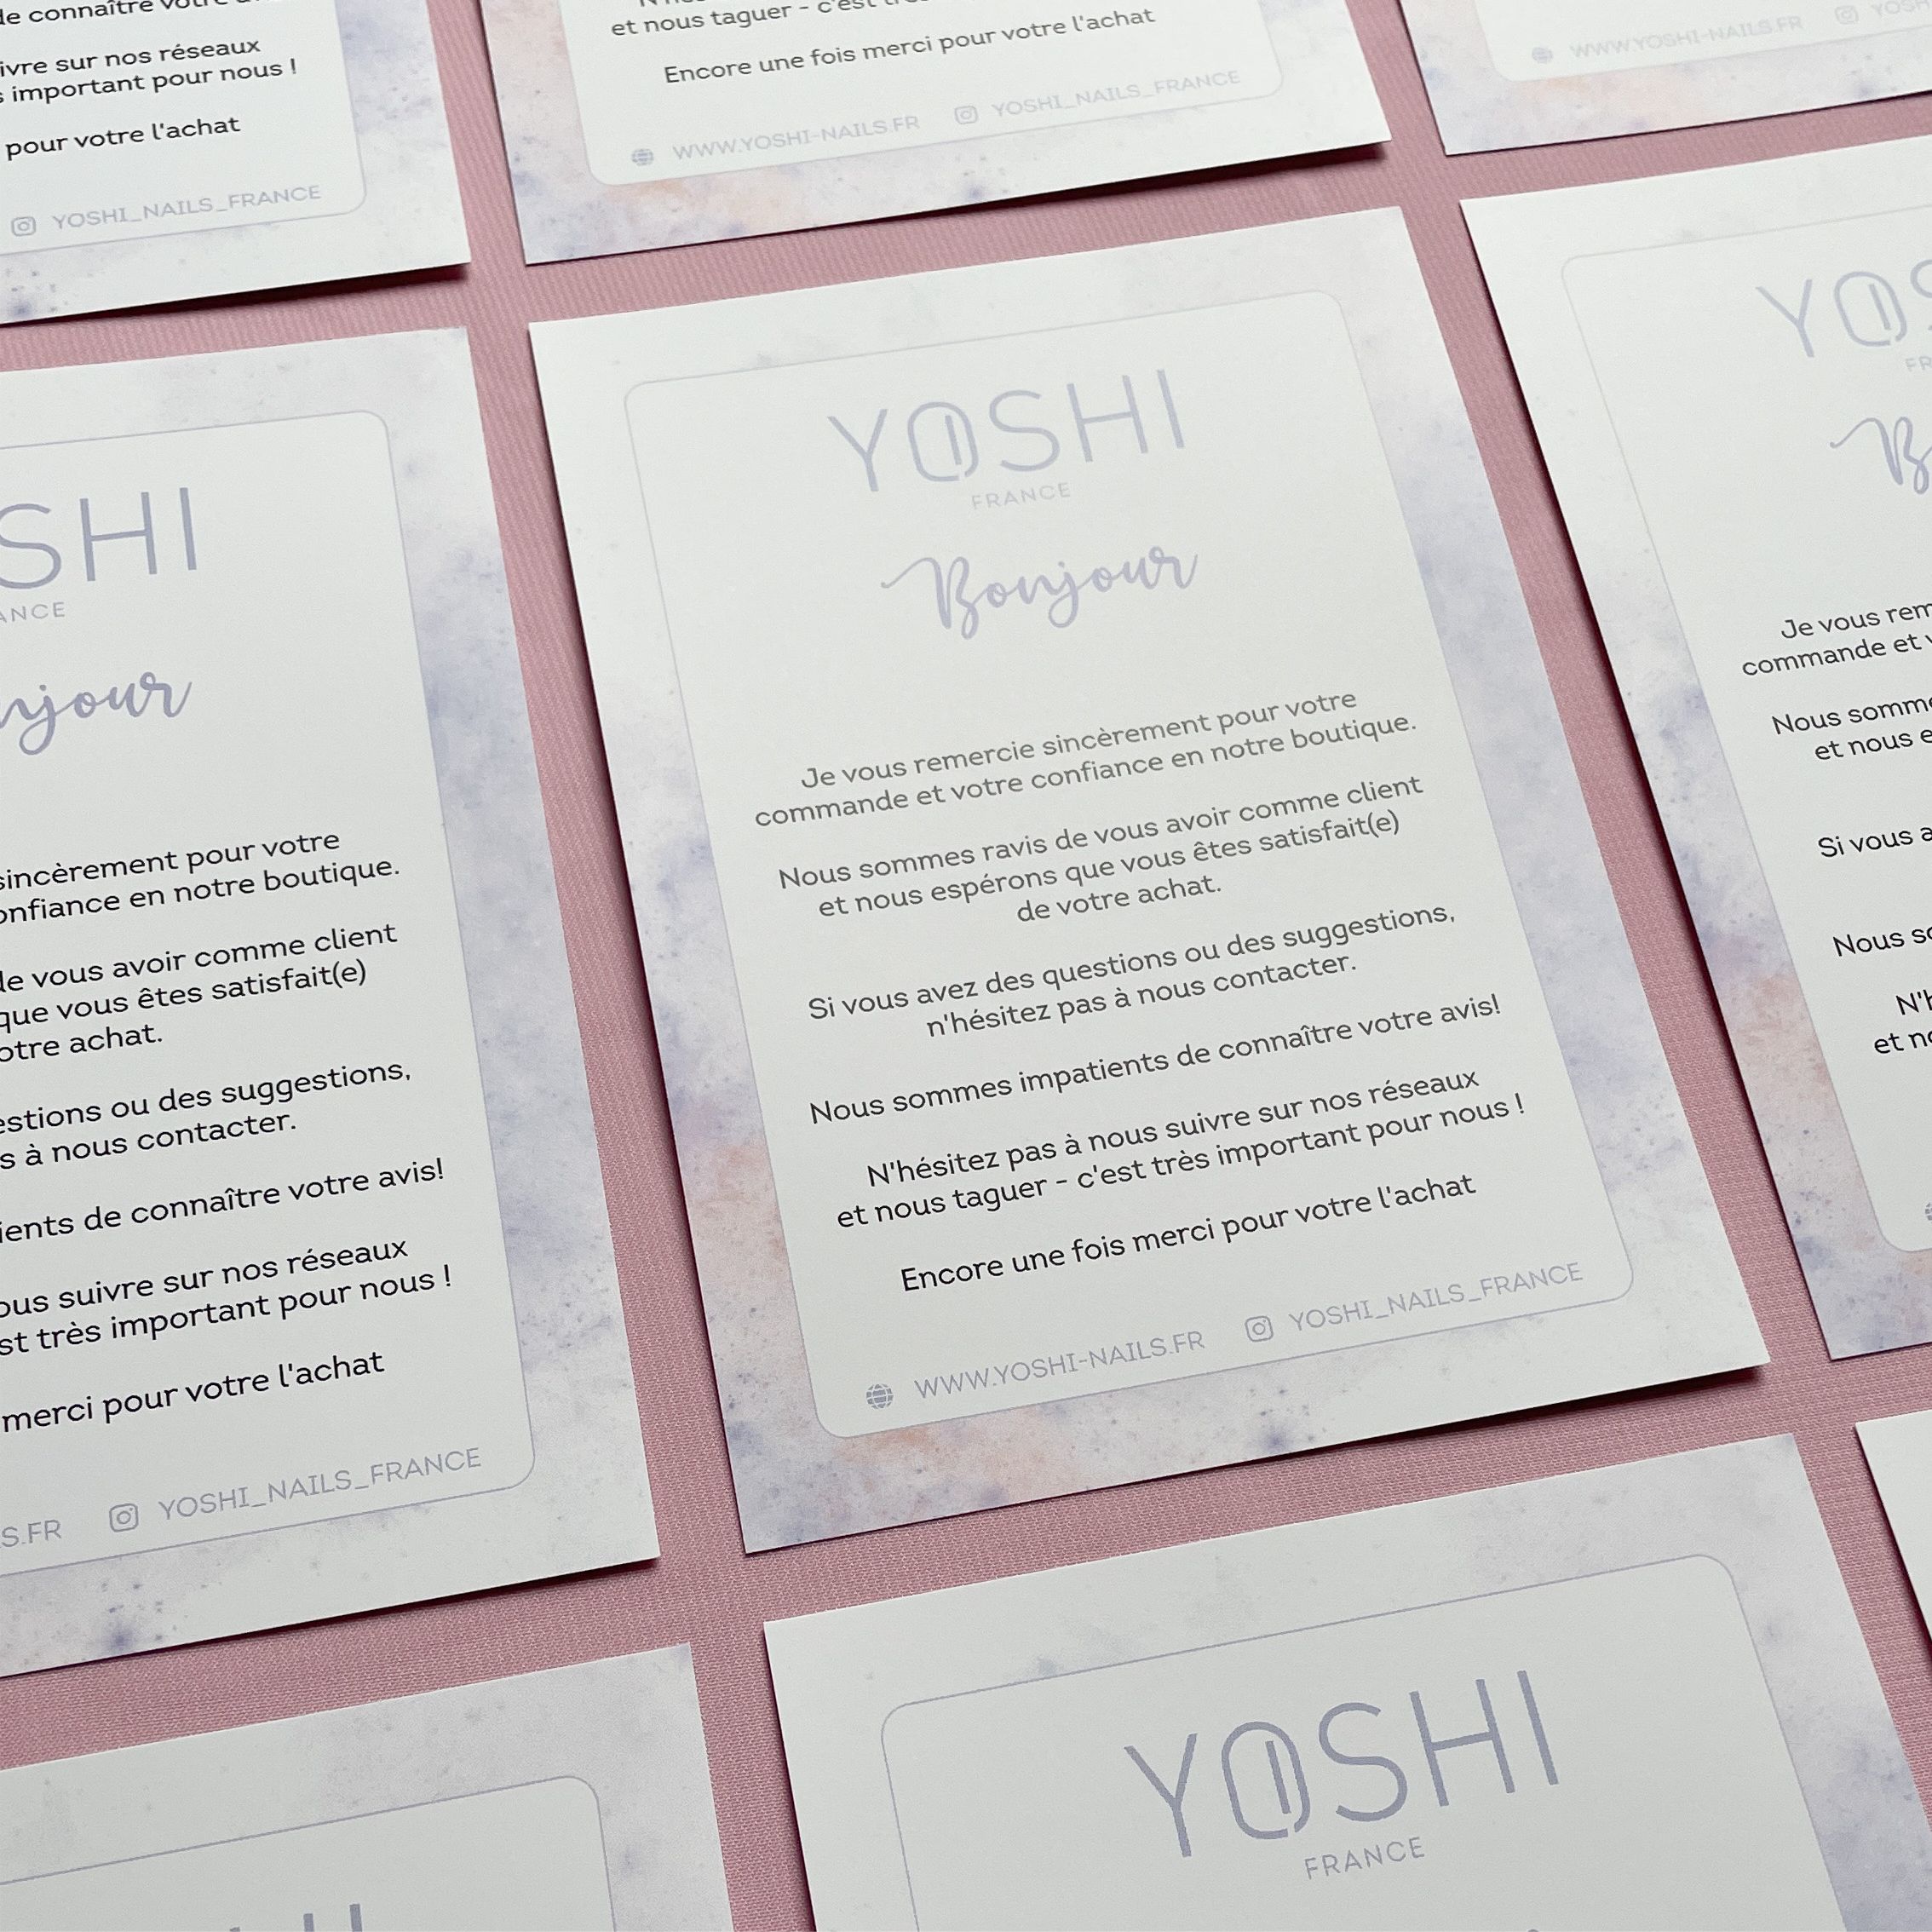 de connaître votre
ivre sur nos réseaux
important pour nous !
pour votre l'achat
YOSHI_NAILS_FRANCE
et nous taguer - c'est
Encore une fois merci pour votre l'achat
WWW.YOSHI-NAILS.FR YOSHI_NAILS_FRANCE
WWW.YOSHI-NAILS.FR
SHI
ANCE
njour
sincèrement pour votre
onfiance en notre boutique.
de vous avoir comme client
que vous êtes satisfait(e)
otre achat.
estions ou des suggestions,
s à nous contacter.
ients de connaître votre avis!
ous suivre sur nos réseaux
st très important pour nous !
merci pour votre l'achat
S.FR YOSHI_NAILS_FRANCE
YOSHI
FRANCE
Bonjour
Je vous remercie sincèrement pour votre
commande et votre confiance en notre boutique.
Nous sommes ravis de vous avoir comme client
et nous espérons que vous êtes satisfait(e)
de votre achat.
Si vous avez des questions ou des suggestions,
n'hésitez pas à nous contacter.
Nous sommes impatients de connaître votre avis!
N'hésitez pas à nous suivre sur nos réseaux
et nous taguer - c'est très important pour nous !
Encore une fois merci pour votre l'achat
WWW.YOSHI-NAILS.FR YOSHI_NAILS_FRANCE
YOS
FR
B
Je vous rem
commande et v
Nous somme
et nous e
Si vous a
Nous so
N'h
et no
YOSHI
FRANCE